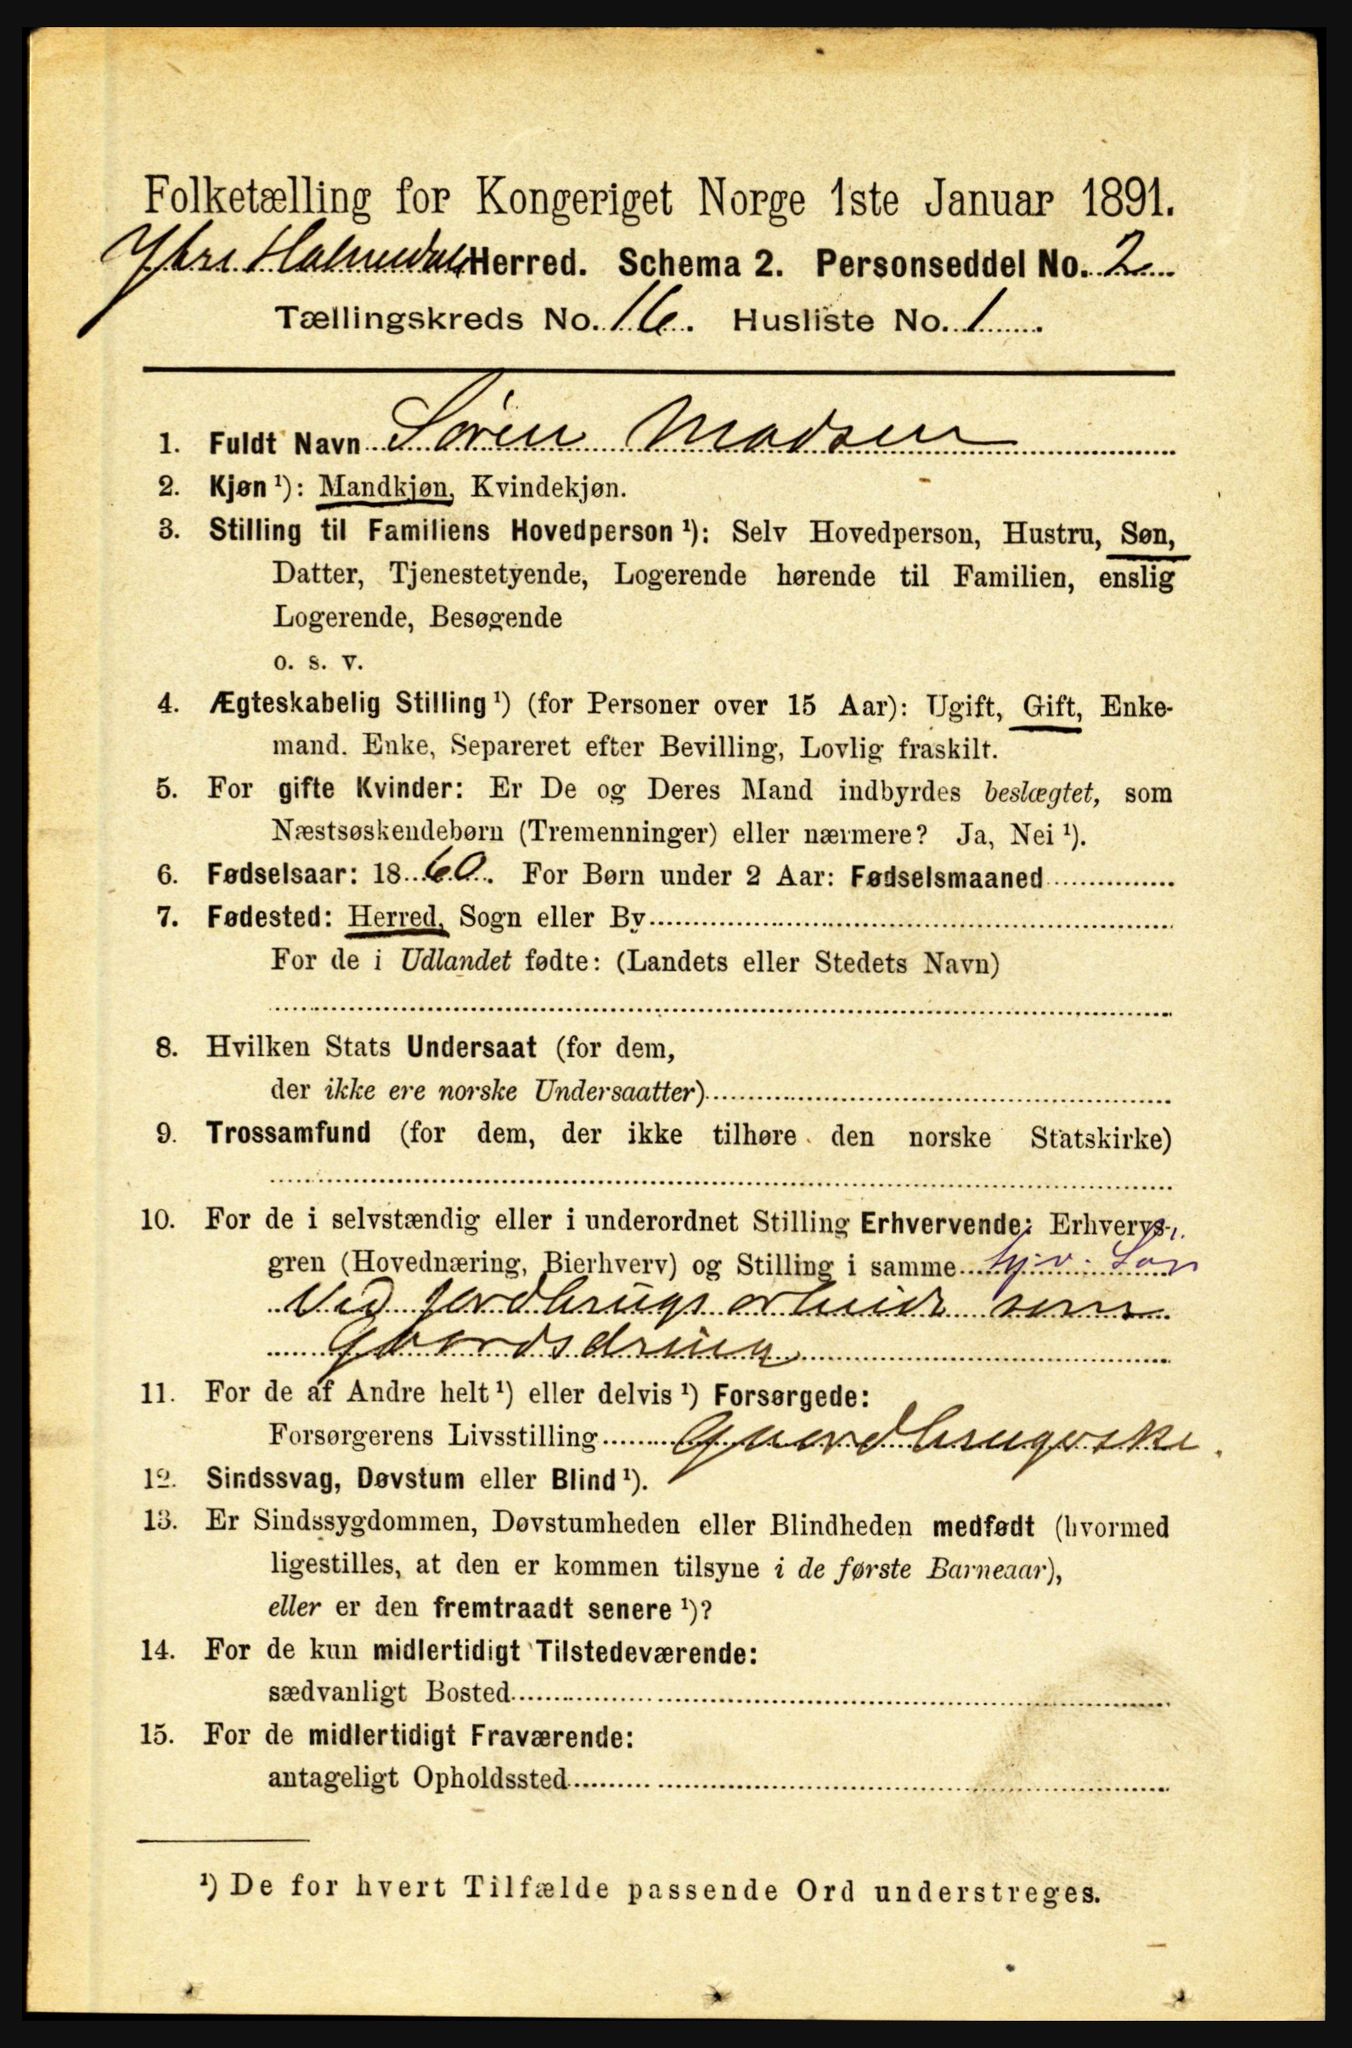 Folketælling for Kongeriget Norge 1ste Januar 1891.
Ytre Holmedals Herred. Schema 2. Personseddel No. 2
Tællingskreds No. 16. Husliste No. 1.
1. Fuldt Navn Søren Madsen
2. Kjøn ¹): Mandkjøn, Kvindekjøn.
3. Stilling til Familiens Hovedperson ¹): Selv Hovedperson, Hustru, Søn,
Datter, Tjenestetyende, Logerende hørende til Familien, enslig
Logerende, Besøgende
o. s. v.
4. Ægteskabelig Stilling ¹) (for Personer over 15 Aar): Ugift, Gift, Enke-
mand. Enke, Separeret efter Bevilling, Lovlig fraskilt.
5. For gifte Kvinder: Er De og Deres Mand indbyrdes beslægtet, som
Næstsøskendebørn (Tremenninger) eller nærmere? Ja, Nei ¹).
6. Fødselsaar: 1860. For Børn under 2 Aar: Fødselsmaaned
7. Fødested: Herred, Sogn eller By
For de i Udlandet fødte: (Landets eller Stedets Navn)
8. Hvilken Stats Undersaat (for dem,
der ikke ere norske Undersaatter)
9. Trossamfund (for dem, der ikke tilhøre den norske Statskirke)
10. For de i selvstændig eller i underordnet Stilling Erhvervende: Erhvervs-
gren (Hovednæring, Bierhverv) og Stilling i samme hjv. Søn
Ved jordbrugsarbeide som
11. For de af Andre helt ¹) eller delvis ¹) Forsørgede:
Forsørgerens Livsstilling
12. Sindssvag, Døvstum eller Blind ¹).
13. Er Sindssygdommen, Døvstumheden eller Blindheden medfødt (hvormed
ligestilles, at den er kommen tilsyne i de første Barneaar),
eller er den fremtraadt senere ¹)?
14. For de kun midlertidigt Tilstedeværende:
sædvanligt Bosted
15. For de midlertidigt Fraværende:
antageligt Opholdssted
¹) De for hvert Tilfælde passende Ord understreges.